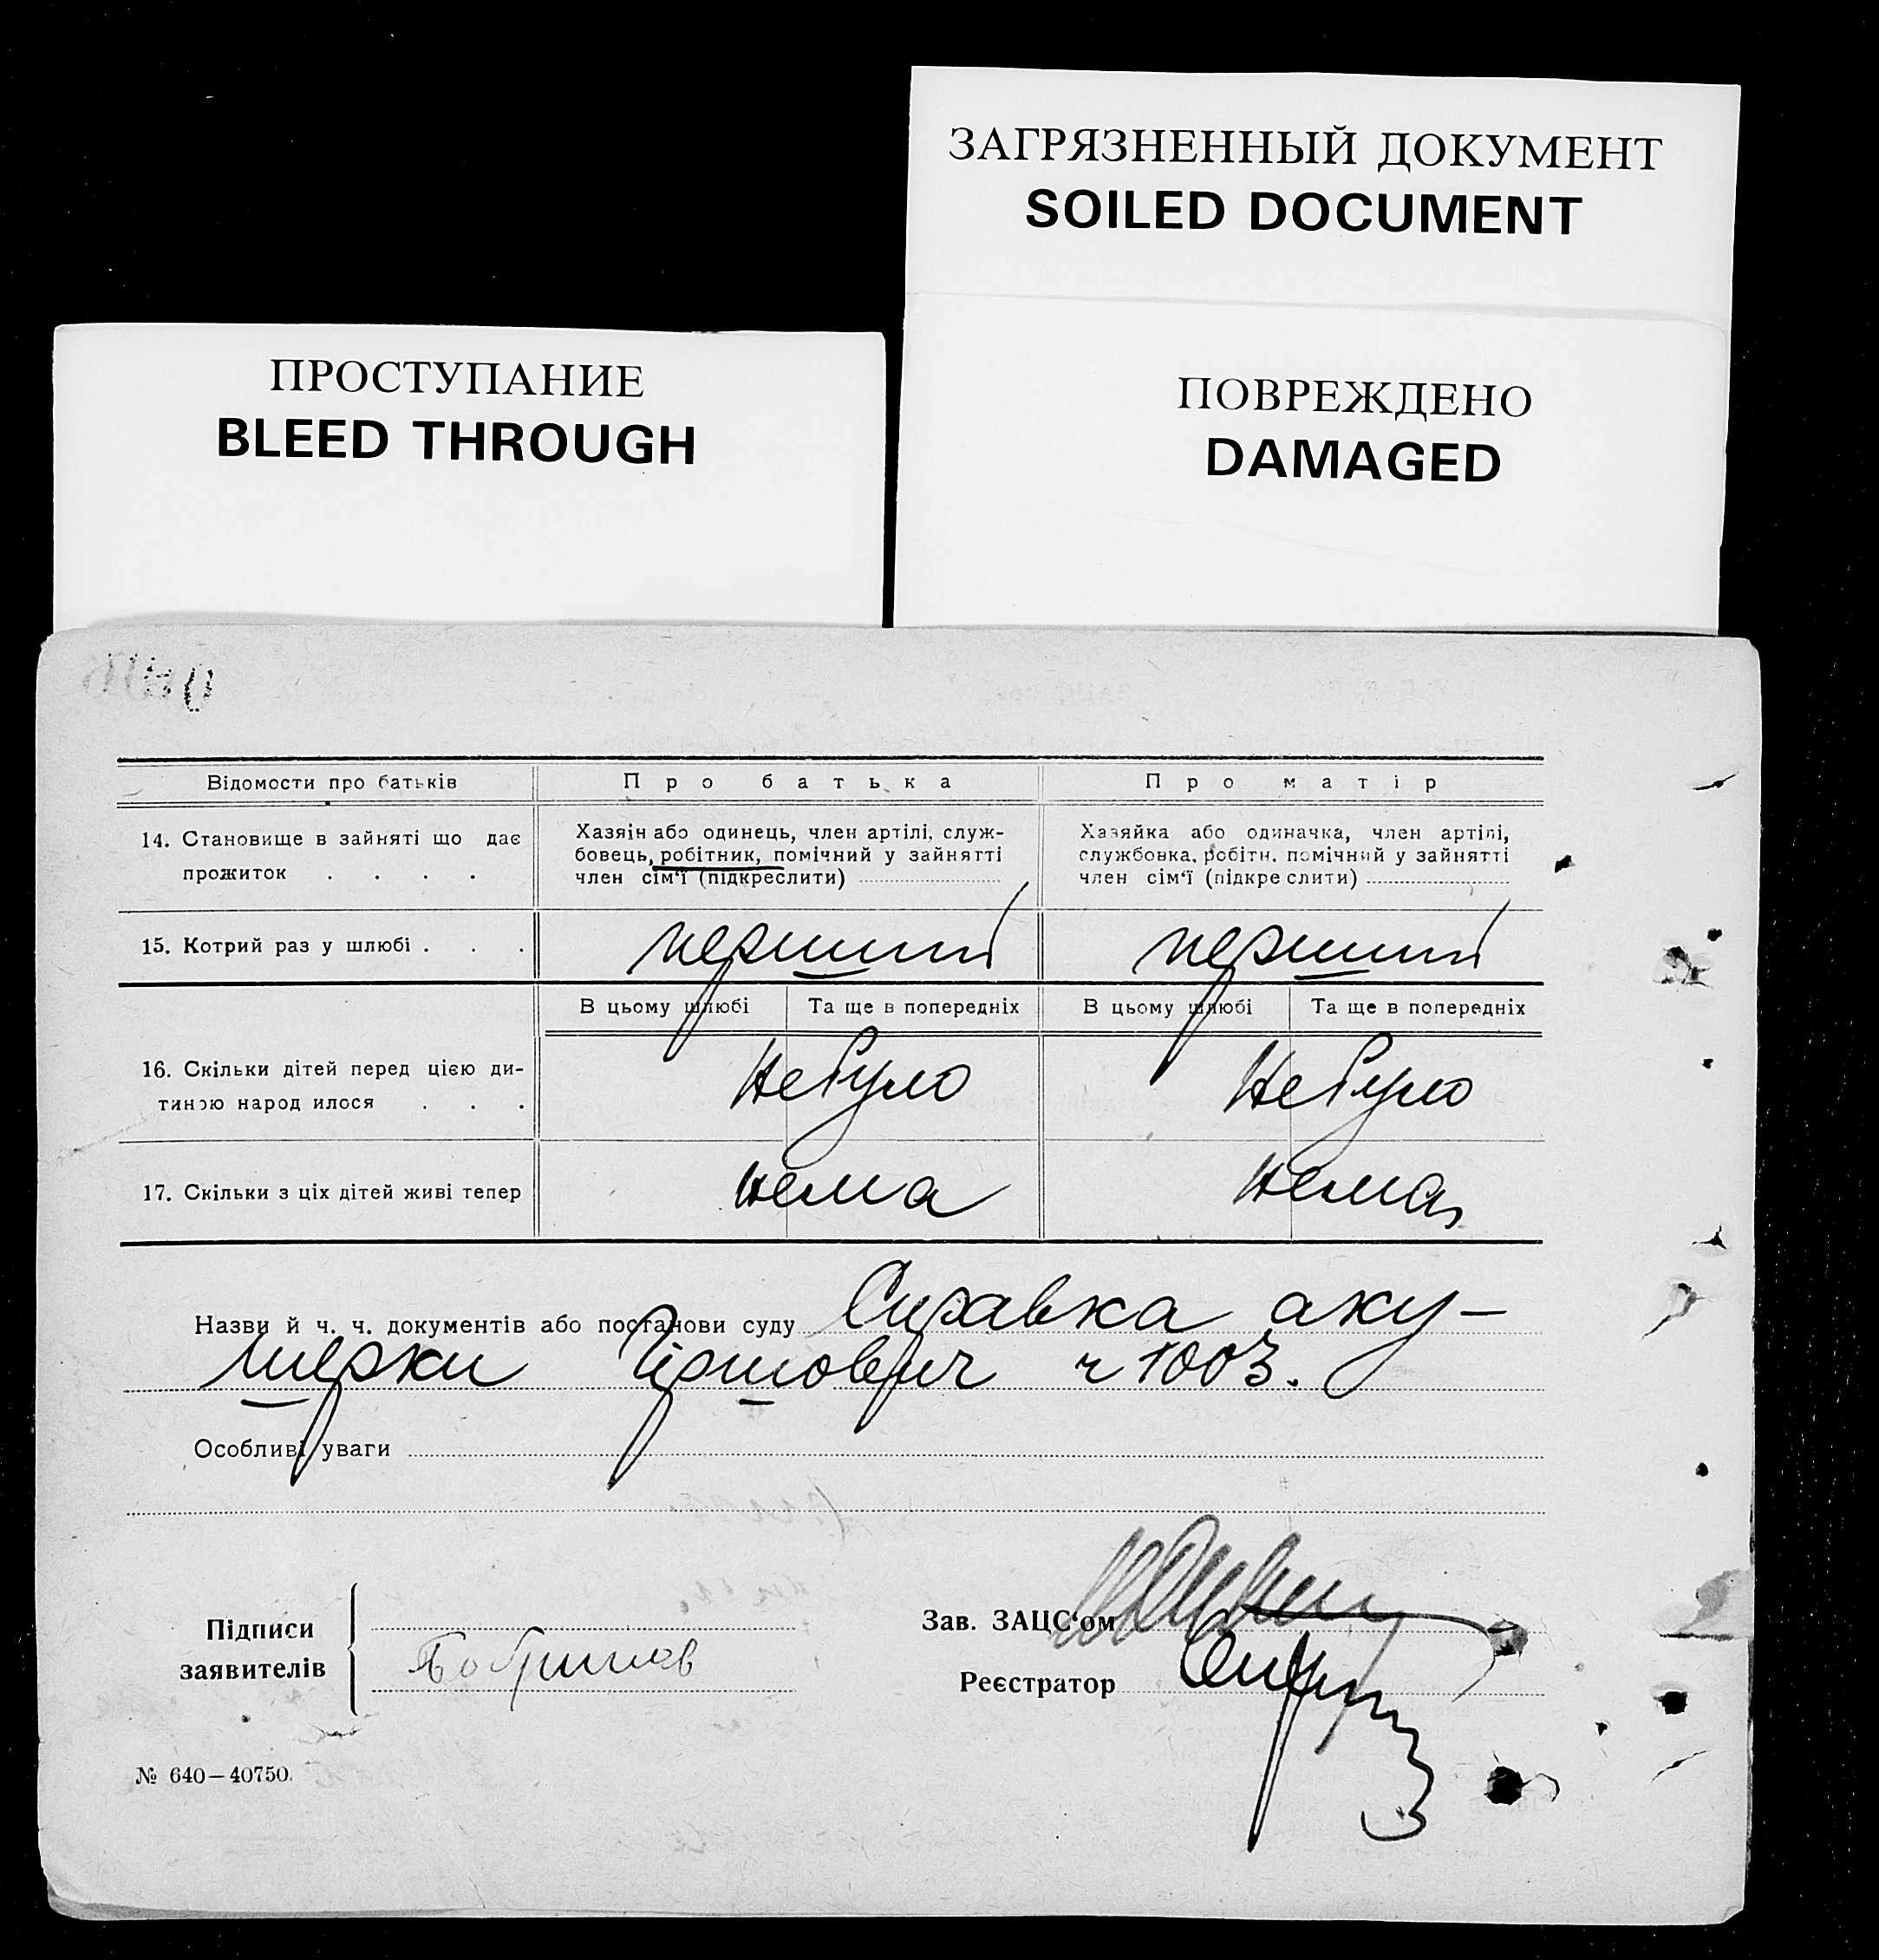 ЗАГРЯЗНЕННЫЙ ДОКУМЕНТ
SOILED DOCUMENT
ПРОСТУПАНИЕ
BLEED THROUGH
ПОВРЕЖДЕНО
DAMAGED
Відомости про батьків
Про батька
Про матір
14. Становище в зайняті що дає
прожиток . . . .
Хазяін або одинець, член артілі, служ-
бовець, робітник, помічний у зайнятті
член сім'ї (підкреслити)
Хазяйка або одиначка, член артілі,
службовка, робітн. помічний у зайнятті
член сім'ї (підкре слити)
15. Котрий раз у шлюбі . . .
перший
перший
В цьому шлюбі
Та ще в попередніх
В цьому шлюбі
Та ще в попередніх
16. Скільки дітей перед цією ди-
тиною народ илося . . .
Небуло
Небуло
17. Скільки з ціх дітей живі тепер
нема
нема
Назви й ч. ч. документів або постанови суду Справка аку-
шерки ч 1003.
Особливі уваги
Підписи
заявителів
Зав. ЗАЦС'ом
Реєстратор
№ 640—40750.